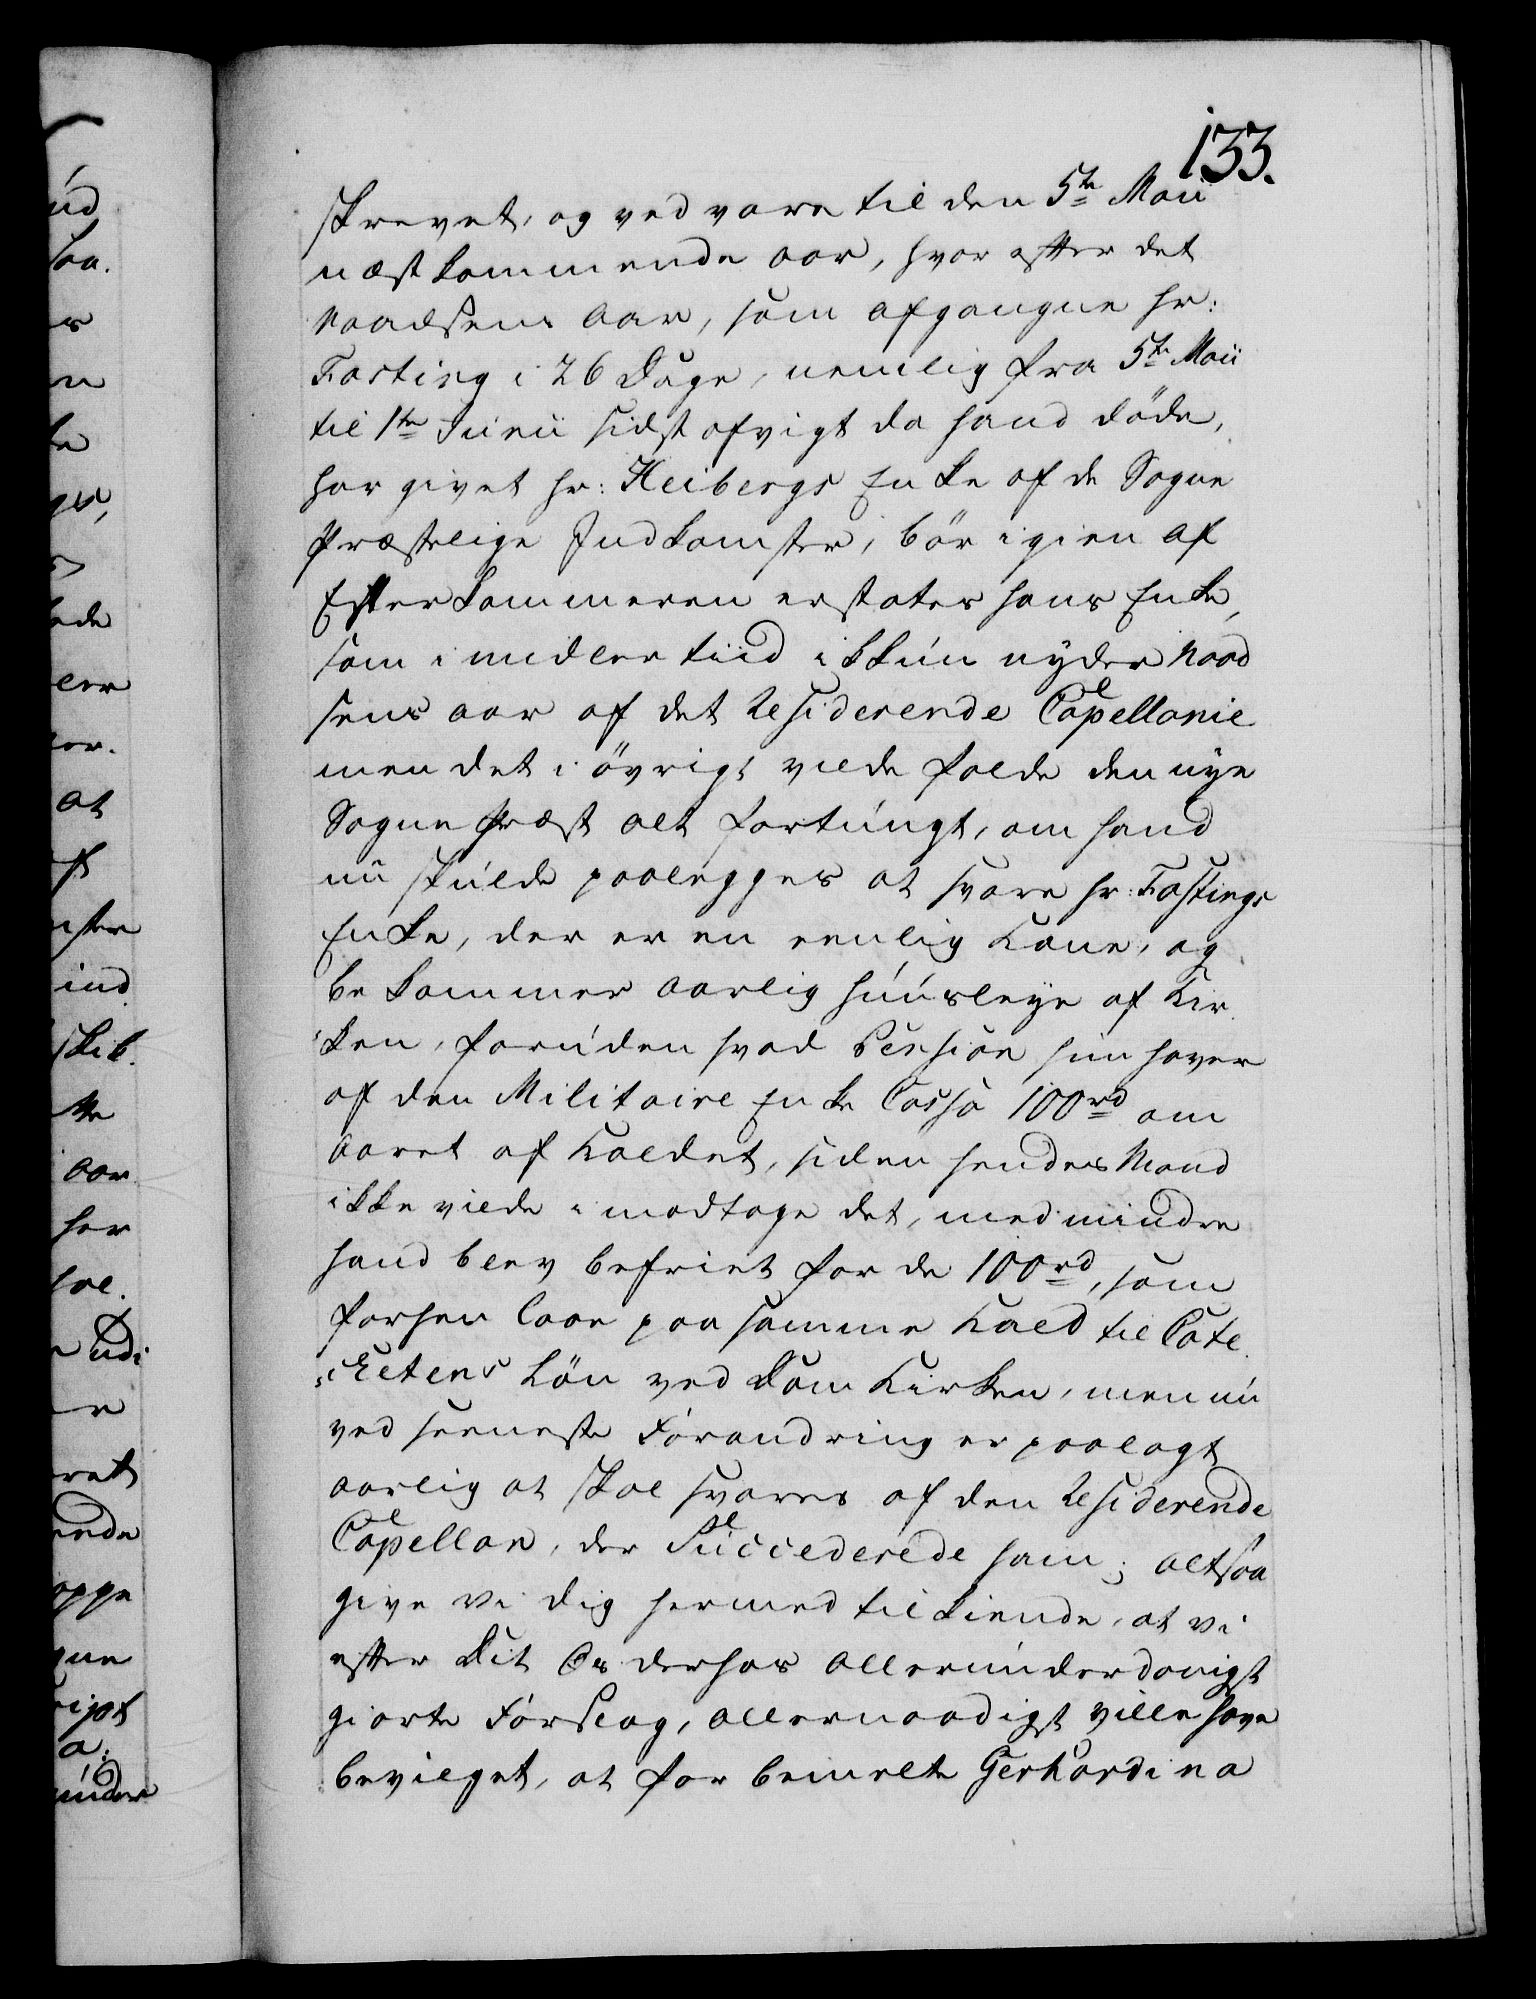 133.
skrevet, og ved vare til den 5te Maii
næstkommende aar, hvor efter det
Naadsens Aar, som afgangne Hr:
Fasting i 26 Dage, nemlig fra 5te Maii
til 1te Junii sidst afvigt da hand döde,
har givet Hr: Heibergs Enke af de Sogne
Præstelige Indkomster, bör igien af
Efterkommeren erstates hans Enke,
som imidlertiid ikkun nyder Naad
sens aar af det Residerende Capellanie
men det i övrigt vilde falde den nye
Sogne Præst alt fortungt, om hand
nu skulde paalegges at svare Hr: Fastings
Enke, der er en eenlig Kone, og
bekommer aarlig huusleye af Kir
ken, foruden hvad Pension hun haver
af den Militaire Enke Cassa 100rd om
Aaret af Kaldet, siden hendes Mand
ikke vilde imodtage det, med mindre
hand blev befriet for de 100rd, som
forhen laae paa samme Kald til Cate
chetens Lön ved Dom Kirken, men nu
ved seeneste Forandring er paalagt
aarlig at skal svares af den Residerende
Capellan, der Succederede ham; altsaa
give Vi dig hermed tilkiende, at vi
efter Dit Os derhos allerunderdanigst
giorte Forslag, allernaadigst ville have
bevilget, at forbemelte Gerhardina